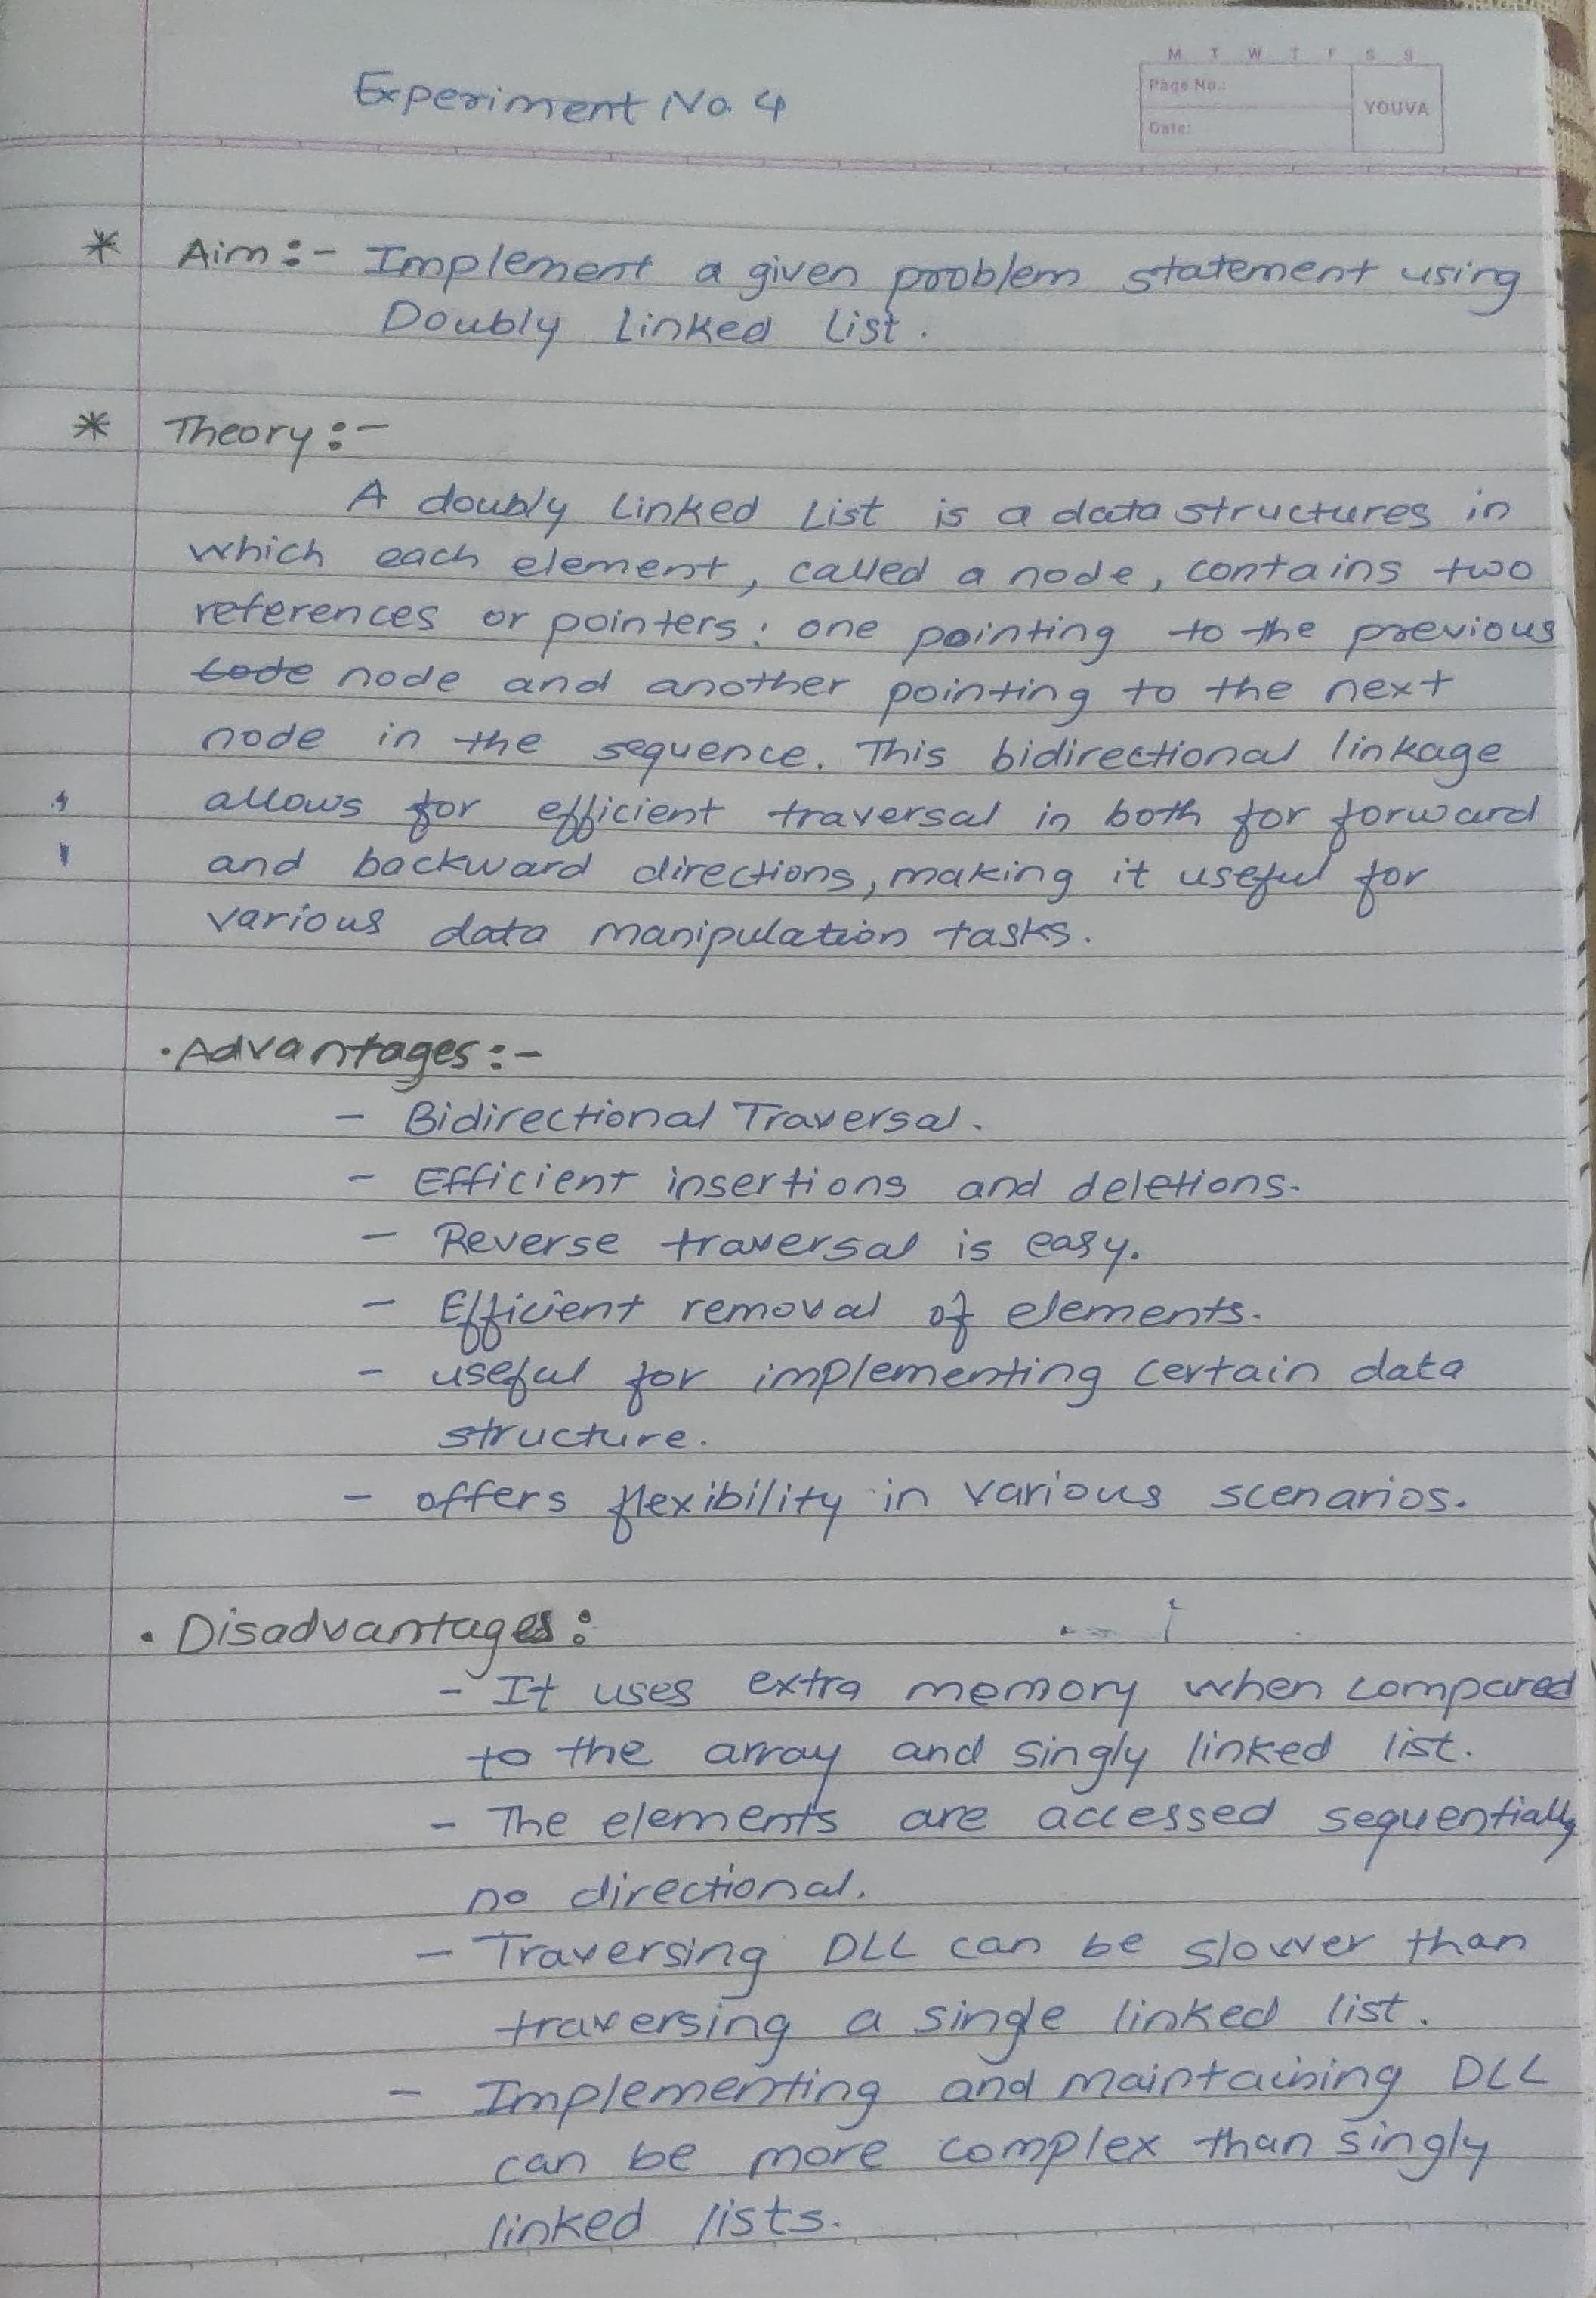 M T W T F S S
Experiment No. 4
Page No.:
YOUVA
Date:
* Aim :- Implement a given problem statement using
Doubly Linked List.
* Theory :-
A doubly Linked List is a data structures in
which each element, called a node, contains two
references or pointers : one pointing to the previous
code node and another pointing to the next
node in the sequence. This bidirectional linkage
allows for efficient traversal in both for forward
and backward directions, making it useful for
various data manipulation tasks.
• Advantages :-
- Bidirectional Traversal.
- Efficient insertions and deletions.
- Reverse traversal is easy.
- Efficient removal of elements.
- useful for implementing certain data
structure.
- offers flexibility in various scenarios.
• Disadvantages :
- It uses extra memory when compared
to the array and singly linked list.
- The elements are accessed sequentially
no directional.
- Traversing DLL can be slower than
traversing a single linked list.
- Implementing and maintaining DLL
can be more complex than singly
linked lists.